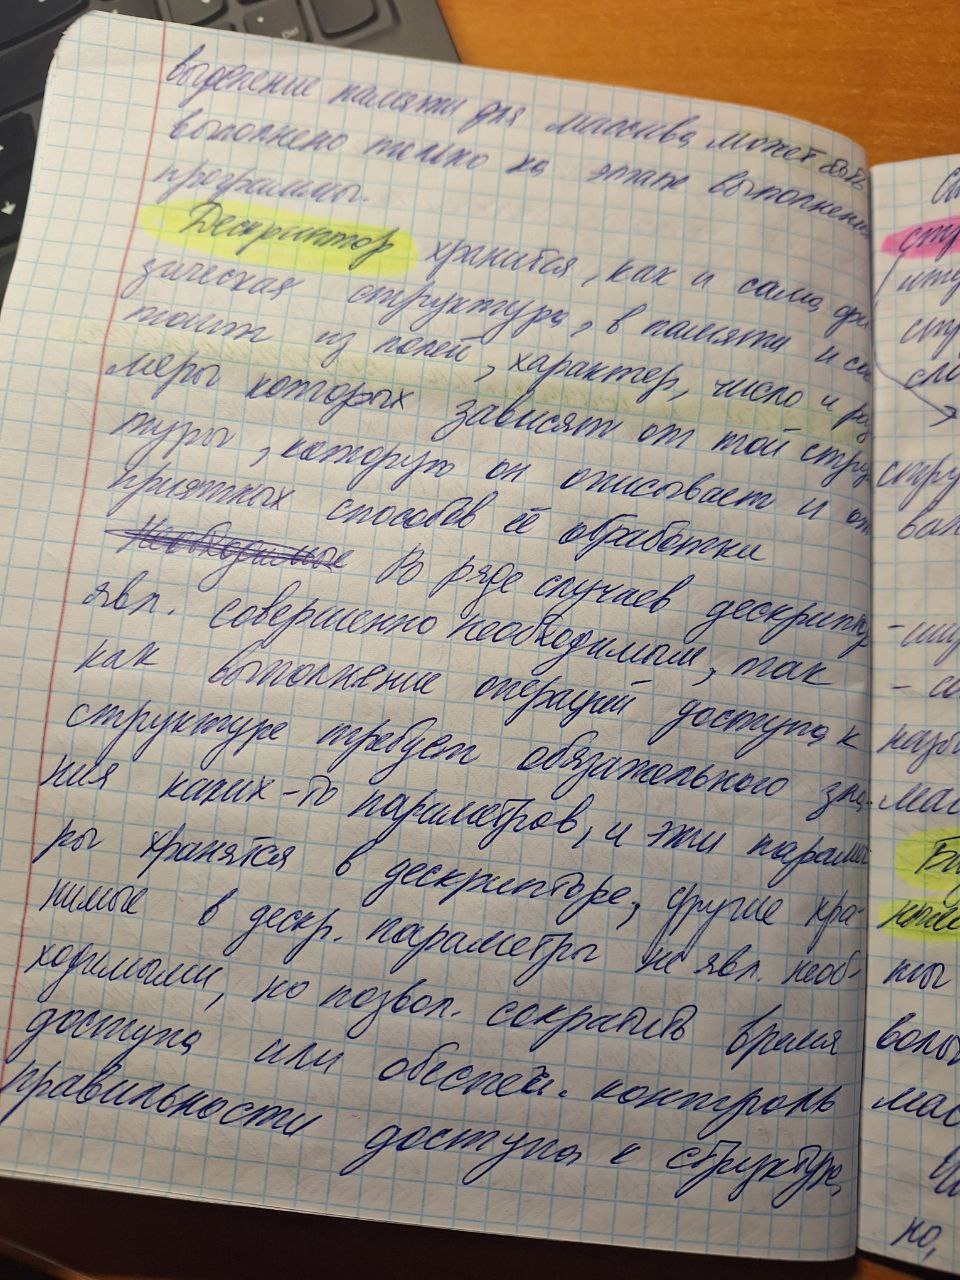 выделение памяти для массива может быть
выполнено только на этапе выполнения
программы.
Дескриптор хранится, как и сама фи
зическая структура, в памяти и сос
тоит из полей, характер, число и раз
меры которых зависят от той струк
туры, которую он описывает и от
приятных способов её обработки
Необходимое В ряде случаев дескриптор
явл. совершенно необходимым, так
как выполнение операций доступа к
структуре требует обязательного зна-
ния каких-то параметров, и эти парамет
ры хранятся в дескрипторе, другие хра-
нимые в дескр. параметры не явл. необ-
ходимыми, но позвол. сократить время
доступа или обеспеч. контроль
правильности доступа к структуре,
но,